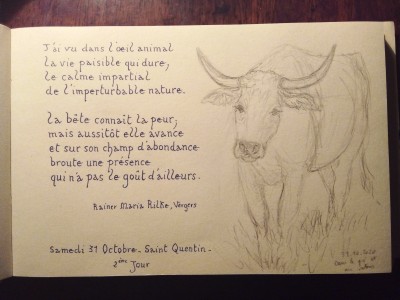 J'ai vu dans l'œil animal
la vie paisible qui dure,
le calme impartial
de l'imperturbable nature.
la bête connaît la peur;
mais aussitôt elle avance
et sur son champ d'abondance
broute une présence
qui n'a pas le goût d'ailleurs.
Rainer Maria Rilke, Vergers
Samedi 31 Octobre - Saint Quentin -
2ème Jour